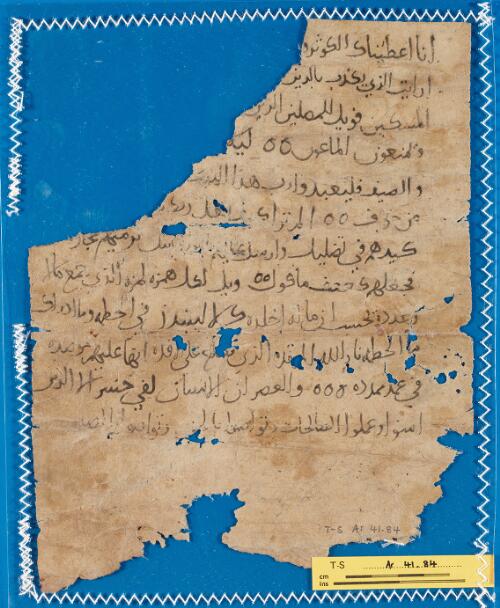 انا اعطيناك الكوثر
ارايت الذي يكذب بالدين
المسكين فويل للمصلين الذين
ويمنعون الماعون ٥٥ ليلا
والصيف فليعبدوا رب هذا البيت
من خوف ٥٥ الم ترا كيف فعل ربك
كيدهم في تضليل وارسل عليهم طيرا ترميهم بحجار
فجعلهم كعصف ماكول ٥٥ ويل لكل همزه لمزه الذي جمع مالا
وعدده يحسب ان ماله اخلده كلا لينبذن في الحطمه وما ادراك
ما الحطمه نار الله الموقده الذي تطلع على الافده انها عليهم موصده
في عمد ممدده ٥٥٥ والعصر ان الانسان لفي خسر الا الذين
امنوا وعملوا الصالحات وتواصوا بالحق وتواصوا بالصبر
T-S Ar 41.84
T-S Ar 41.84
cm
ins